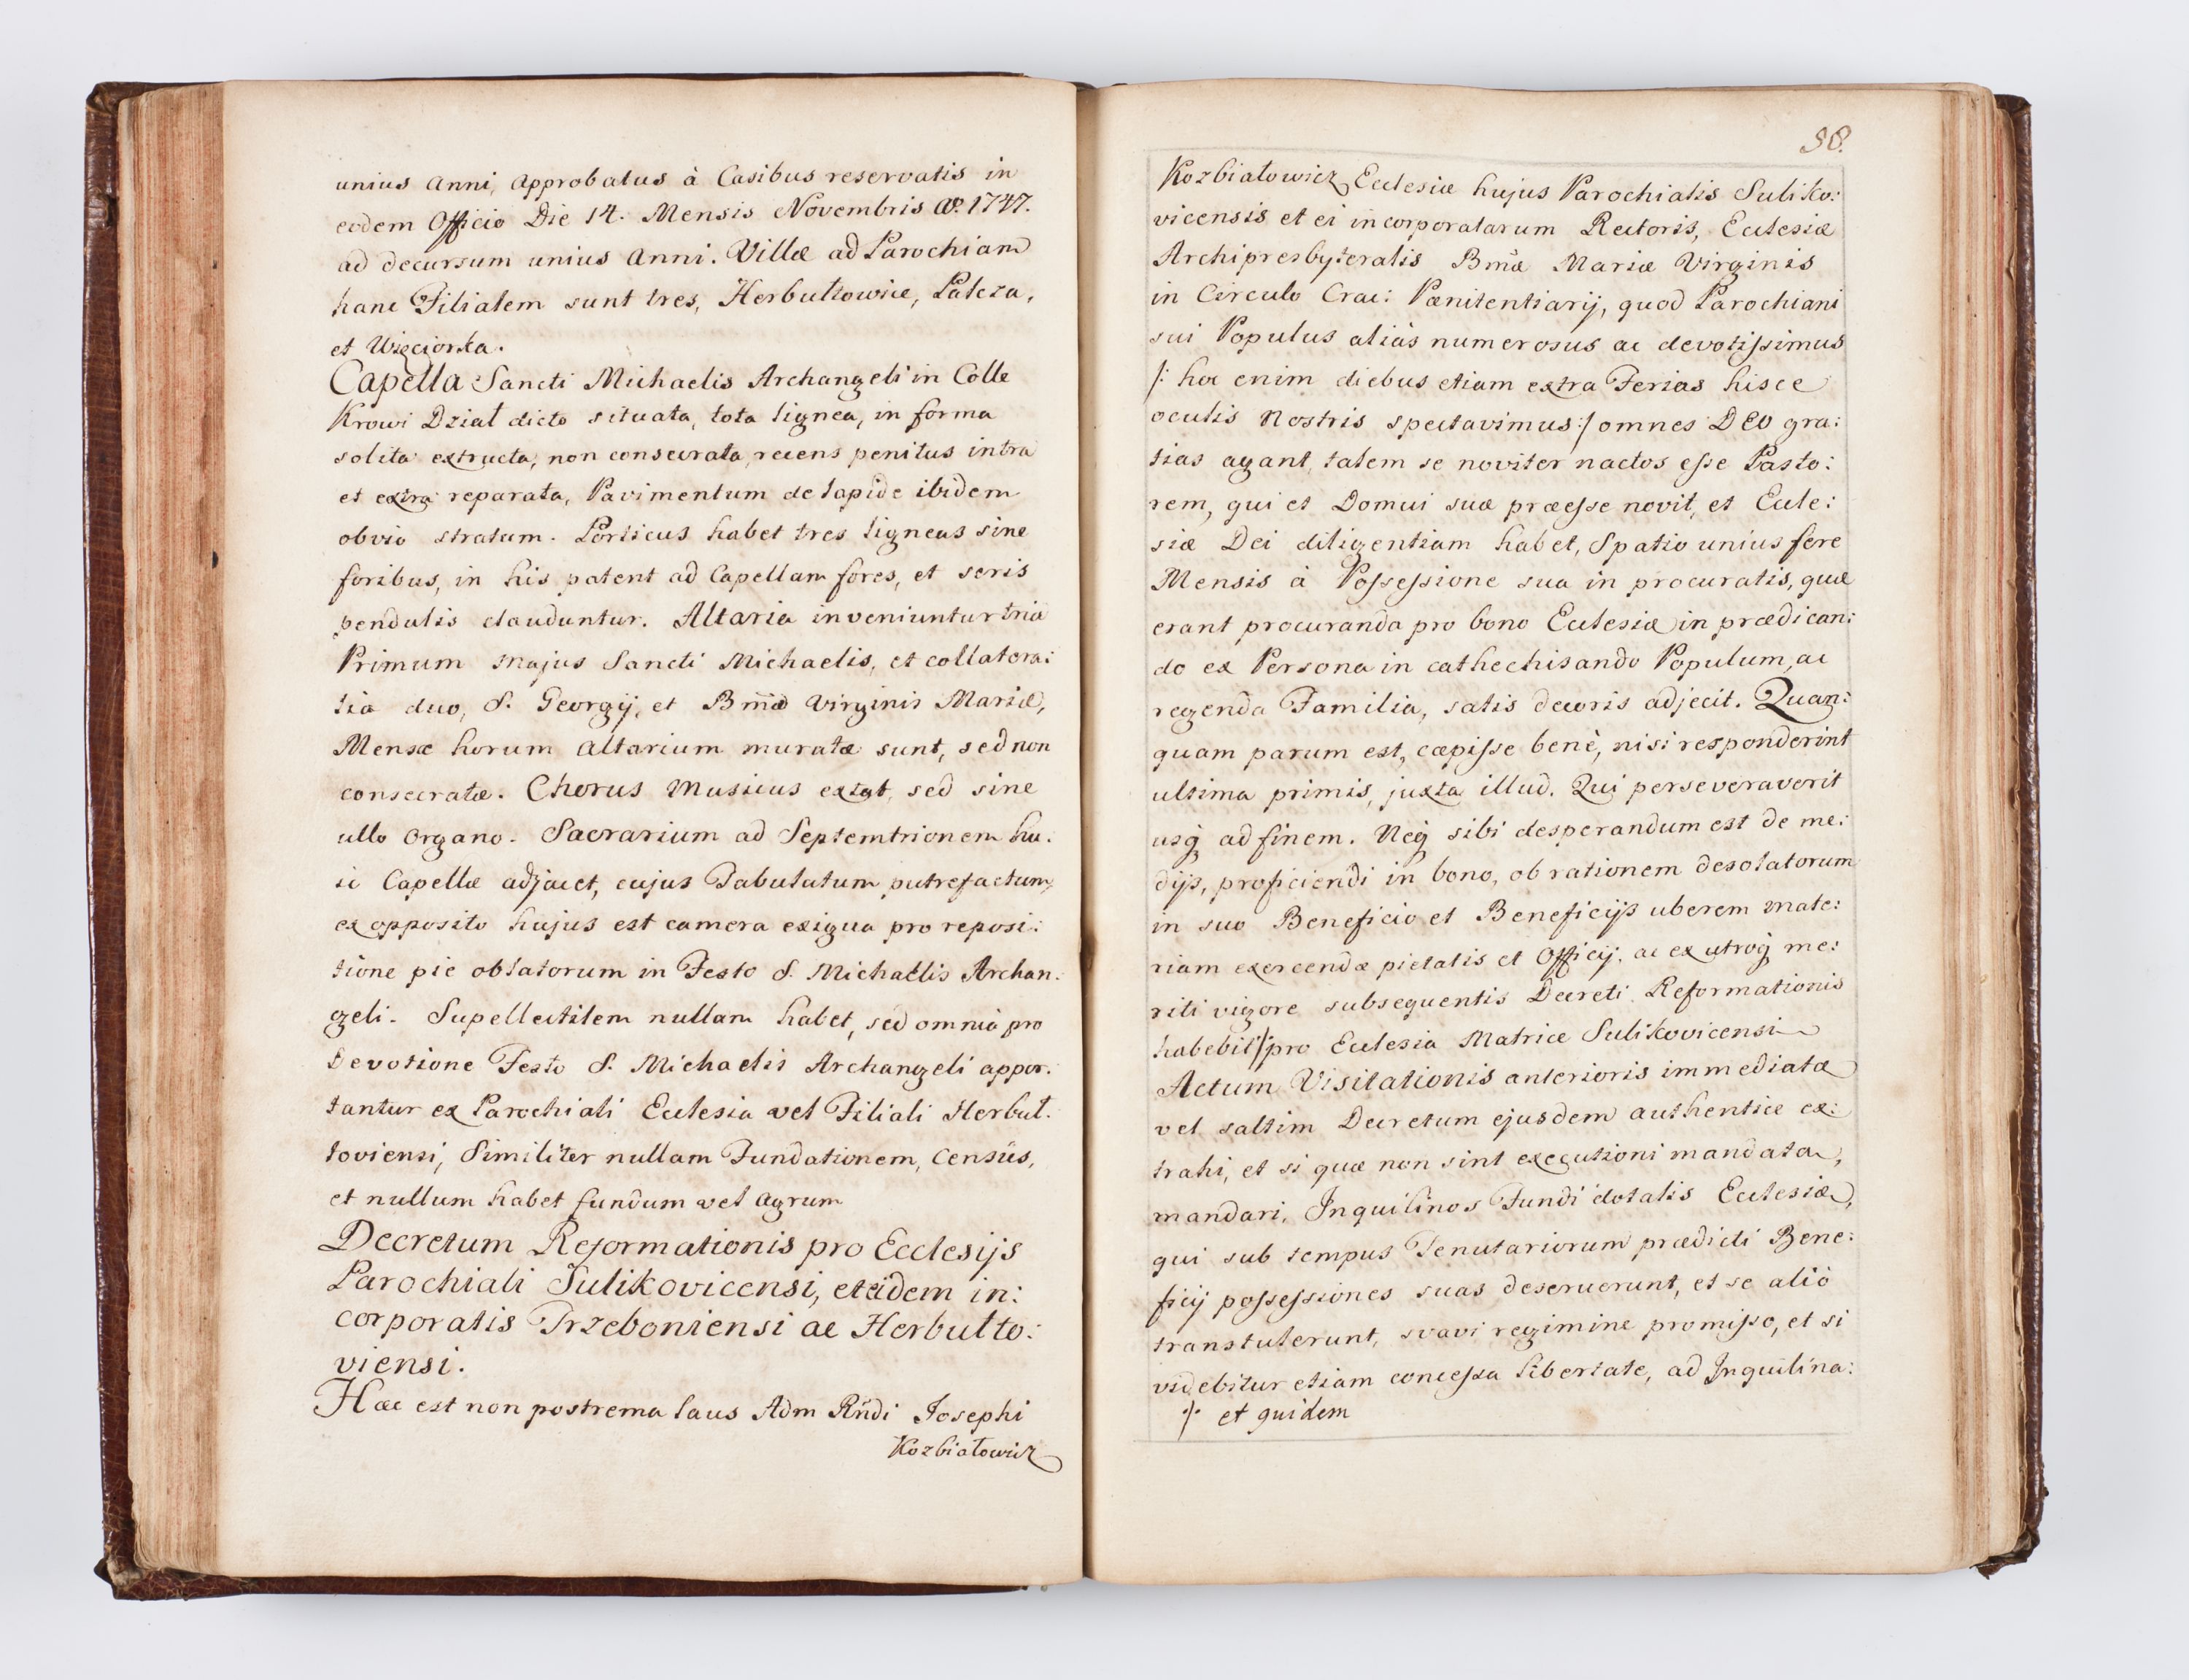 unius anni, approbatus à Casibus reservatis in
eodem Officio Die 14. Mensis Novembris A⁰. 1747.
ad decursum unius anni. Villæ ad Parochiam
hanc Filialem sunt tres, Herbułtowice, Palcza,
et Więciorka.
Capella Sancti Michaelis Archangeli in Colle
Krowi Dział dicto situata, tota lignea, in forma
solita extructa, non consecrata, recens penitus intra
et extra reparata, Pavimentum de lapide ibidem
obvio stratum. Porticus habet tres ligneas sine
foribus, in his patent ad Capellam fores, et seris
pendulis clauduntur. Altaria inveniuntur tria
Primum majus Sancti Michaelis, et collatera:
lia duo, S. Georgij, et Bmæ Virginis Mariæ,
Mensæ horum altarium muratæ sunt, sed non
consecratæ. Chorus musicus extat, sed sine
ullo organo. Sacrarium ad Septemtrionem hu:
ic Capellæ adjacet, cujus Tabulatum putrefactum,
ex opposito hujus est camera exigua pro reposi:
tione pie oblatorum in Festo S. Michaelis Archan:
geli. Supellectilem nullam habet, sed omnia pro
Devotione Festo S. Michaelis Archangeli appor:
tantur ex Parochiali Ecclesia vel Filiali Herbuł:
toviensi, Similiter nullam Fundationem, Censûs,
et nullum habet fundum vel agrum
Decretum Reformationis pro Ecclesijs
Parochiali Sulikovicensi, et eidem in:
corporatis Trzeboniensi ac Herbułto:
viensi.
Hæc est non postrema laus Adm Rńdi Josephi
Kozbiałowicz
58.
Kozbiałowicz Ecclesiæ hujus Parochialis Suliko:
vicensis et ei incorporatarum Rectoris, Ecclesiæ
Archipresbyteralis Bmæ Mariæ Virginis
in Circulo Crac: Pænitentiarij, quod Parochiani
sui Populus aliàs numerosus ac devotissimus
/: hoc enim diebus etiam extra Ferias hisce
oculis nostris spectavimus :/ omnes DEO gra:
tias agant, talem se noviter nactos esse Pasto:
rem, qui et Domui suæ præesse novit, et Eccle:
siæ Dei diligentiam habet, Spatio unius fere
Mensis à Possessione sua in procuratis, quæ
erant procuranda pro bono Ecclesiæ in prædican:
do ex Persona in cathechisando Populum, ac
regenda Familia, satis decoris adjecit. Quan:
quam parum est, cæpisse benè, nisi responderint
ultima primis, juxta illud. Qui perseveraverit
usq́ ad finem. Neq́ sibi desperandum est de me:
dijs, proficiendi in bono, ob rationem desolatorum
in suo Beneficio et Beneficijs uberem mate:
riam exercendæ pietatis et Officij, ac ex utroq́ me:
riti vigore subsequentis Decreti Reformationis
habebit ·/· pro Ecclesia Matrice Sulikovicensi
Actum Visitationis anterioris immediatæ
vel saltim Decretum ejusdem authentice ex:
trahi, et si quæ non sint executioni mandata,
mandari. Inquilinos Fundi dotalis Ecclesiæ,
qui sub tempus Tenutariorum prædicti Bene:
ficij possessiones suas deseruerunt, et se aliò
transtulerunt, svavi regimine promisso, et si
videbitur etiam concessa libertate, ad Inquilina:
·/· et quidem